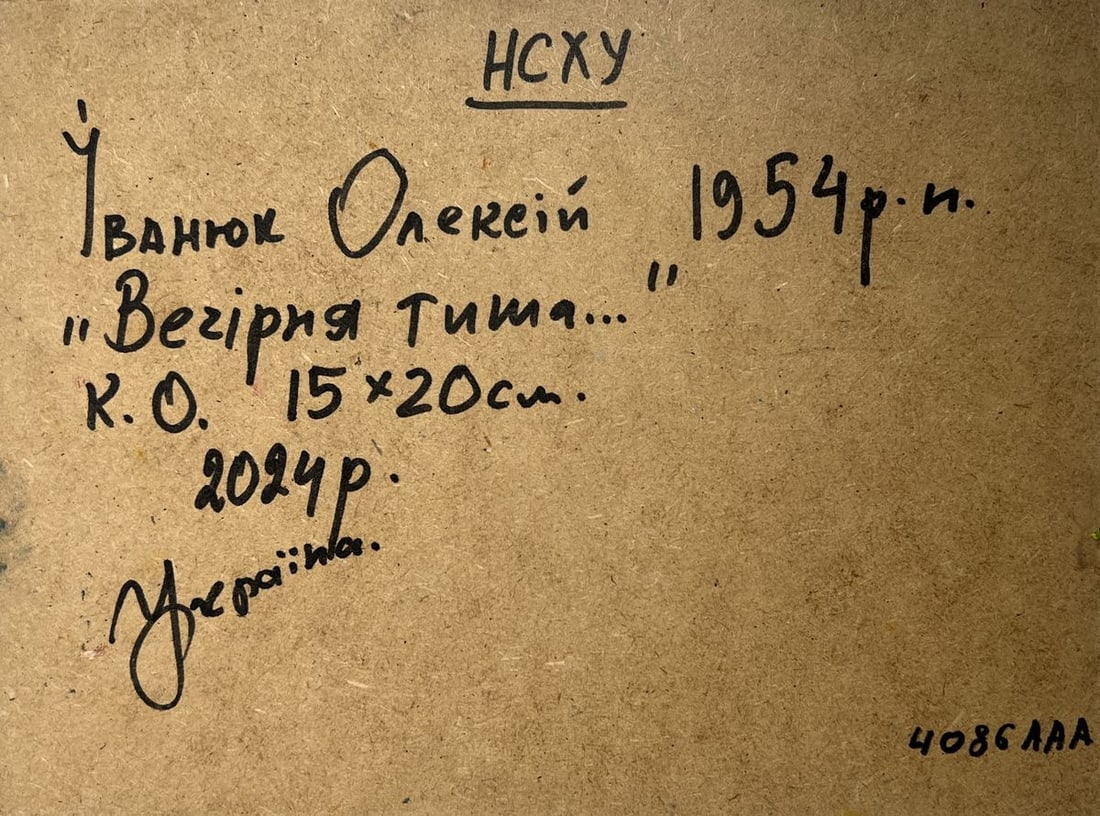 НСХУ
Іванюк Олексій 1954р.н.
"Вечірня тиша..."
К.О. 15×20см.
2024р.
Україна.
4086ААА